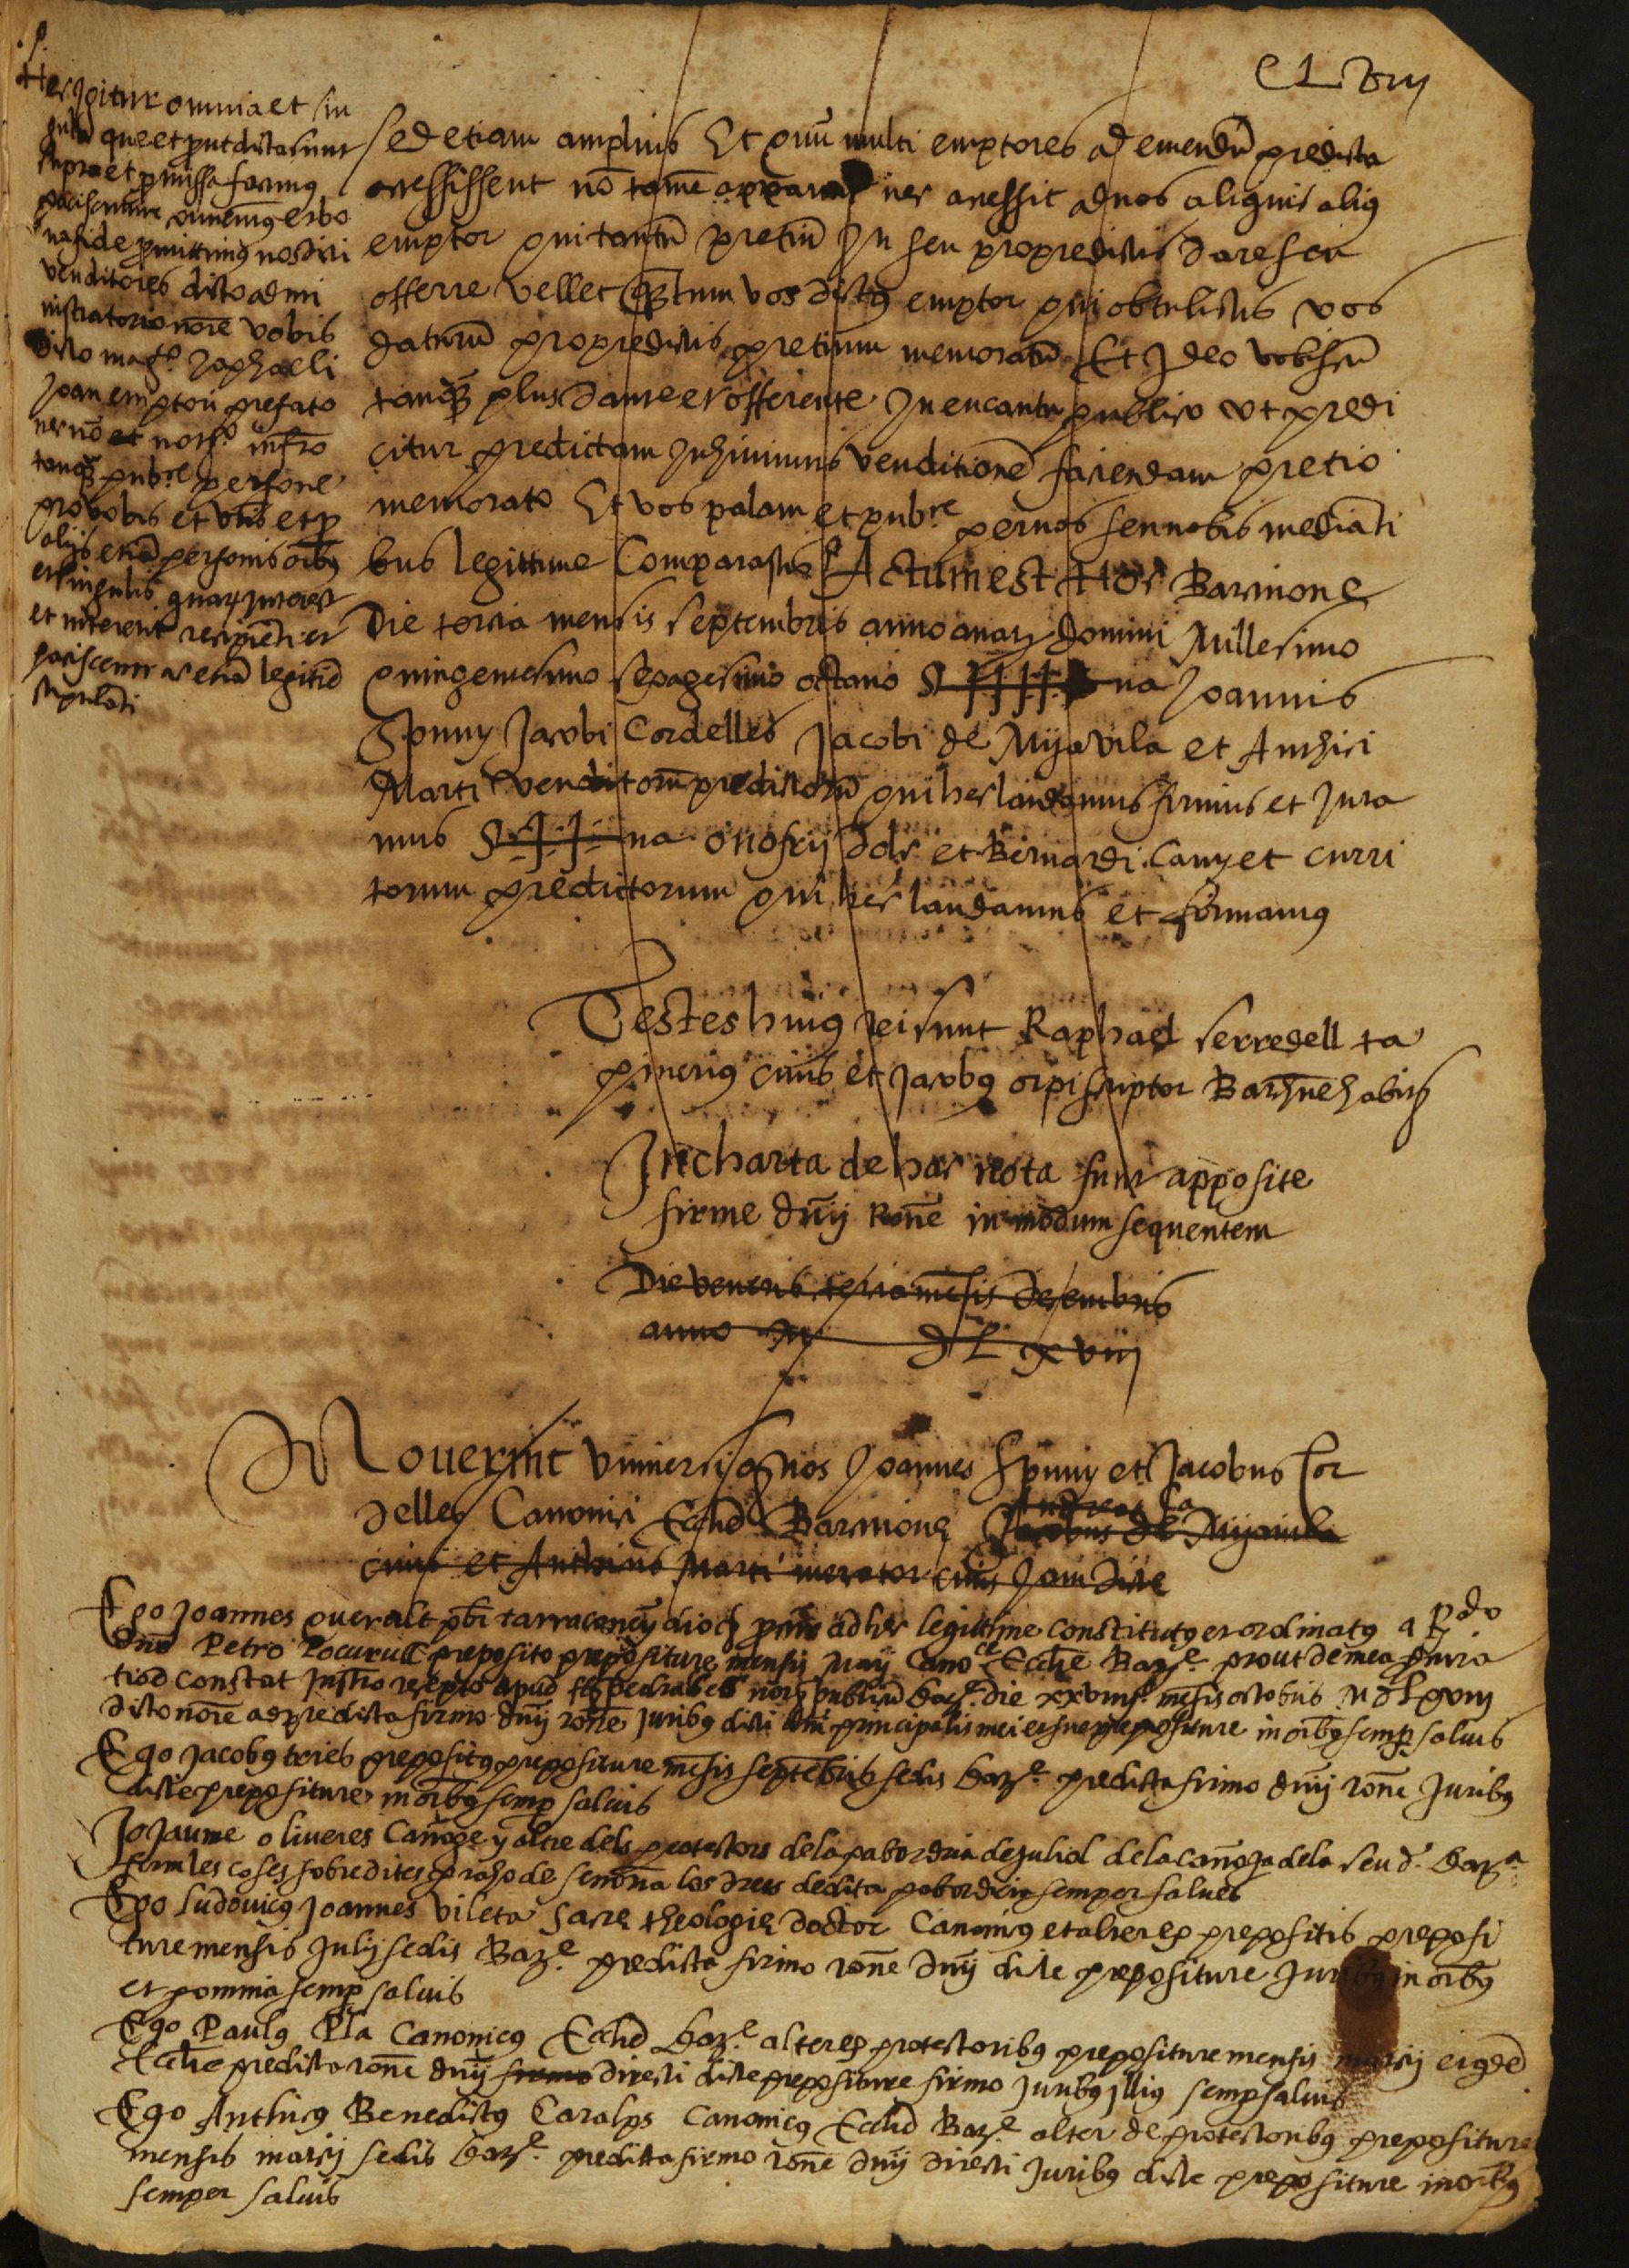 CLviij
.p.
Hec igitur omnia et sin
gula que et put dicta sunt
supra et pmissa facimus
paciscimur convenimus et bo
na fide promittimus nos dicti
venditores dicto admi
nistratorio noīe vobis
dicto magco Raphaeli
Joan emptori prefato
nec nō et notrio infro
tanq̄ pubce persone
pro vobis et vris et p
alijs etiā personis oībus
et singulis quarum interest
et intererit recipienti et
paciscenti ac etiā legitīe
stipulāti
sed etiam amplius Et quū multi emptores ad emendū predicta
accessissent nō tamē apparuit nec accessit ad nos aliquis alius
emptor qui tantū pretiū In seu pro predictis dare seu
offerre vellet quātum vos dictus emptor qui obtulistis vos
daturū pro predictis pretium memoratū Et Ideo vobiscū
tanq̄ plus dante et offerente In encantu publico vt predi
citur predictam Inhivimus venditionē faciendam pretio
memorato Et vos palam et pubce per nos seu nobis medianti
bus legittime Comparastis Actum est Hoc Barcinone
Die tercia mensis septembris anno a naty domini Millesimo
quingentesimo sexagesimo octavo S na Joannis
Spuny Jacobi Cordelles Jacobi de Mijavila et Anthici
Marti venditorū predictorū qui hec laudamus firmus et Jura
mus S na onofrij dolc et Bernardi Canyet curri
torum predictorum qui hec laudamus et firmamus
Testes huius rei sunt Raphael serredell ta
pinerius civis et Jacobus orpi scriptor Barchne habitz
In charta de hac nota sunt apposite
firme dnīj Ronē in modum sequentem
Die veneris tercia mēsis decembris
anno M D L x viij
Noverint Vniversi q̄ nos Joannes Spuny et Jacobus Cor
delles Canonici Ecclīe Barcinone Andreas Ca
Jacobus de Mijavila
civis et Anthicus Marti mercator civis Jam dicte
Ego Joannes queralt pbr tarraconeñ dioc procur ad hec legittime constitutus et ordinatus a Rdo
dno Petro Pocurull preposito prepositure mensis Maij Canoce Ecclīe Barce prout de mea procura
tiōe constat Instro recepto apud not publicū barce die xxviiij mēsis octobris MDLxviij
dicto nomē ad predicta firmo dnīj ronē Juribus dicti dnī principalis mei et sue prepositure in oībus semp salvis
Ego Jacobus tries prepositus prepositure mēsis septēbris sedis barce predicta firmo dnīj ronē Juribus
dicte prepositure in oībus semp salvis
Jo Jaume oliveres Canoge y altre dels protectors de la pabordria de Juliol de la canoja de la seu d. barna
ferm les coses sobredites p raho de señoria los drets de dita pabordria semper salves
Ego Ludovicus Joannes Vileta Sacre theologie doctor Canonicus et alter ex prepositis preposi
ture mensis Julij sedis Barce predicta firmo ronē dnīj dicte prepositure Juribus in oībus
et p omnia semp salvis
Ego Paulus Pla Canonicus Ecclīe barce alter ex protectoribus prepositure mensis marcij eiusdē
Ecclīe predicta ronē dnīj firmo directi dicte prepositure firmo Juribus illius semp salvis
Ego Anthicus Benedictus Caralps Canonicus Ecclīe Barce alter de protectoribus prepositure
mensis marcij sedis barce predicta firmo ronē dnīj directi Juribus dicte prepositure in oībus
semper salvis